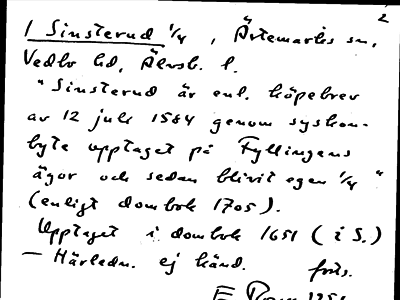 2
1 Sinsterud 1/4, Ärtemarks sn,
Vedbo hd, Älvsb. l.
"Sinsterud är enl. köpebrev
av 12 juli 1584 genom syskon-
byte upptaget på Fyllingens
ägor och sedan blivit egen 1/4"
(enligt dombok 1705).
Upptaget i dombok 1651 (i S.)
— Härledn. ej känd. forts.